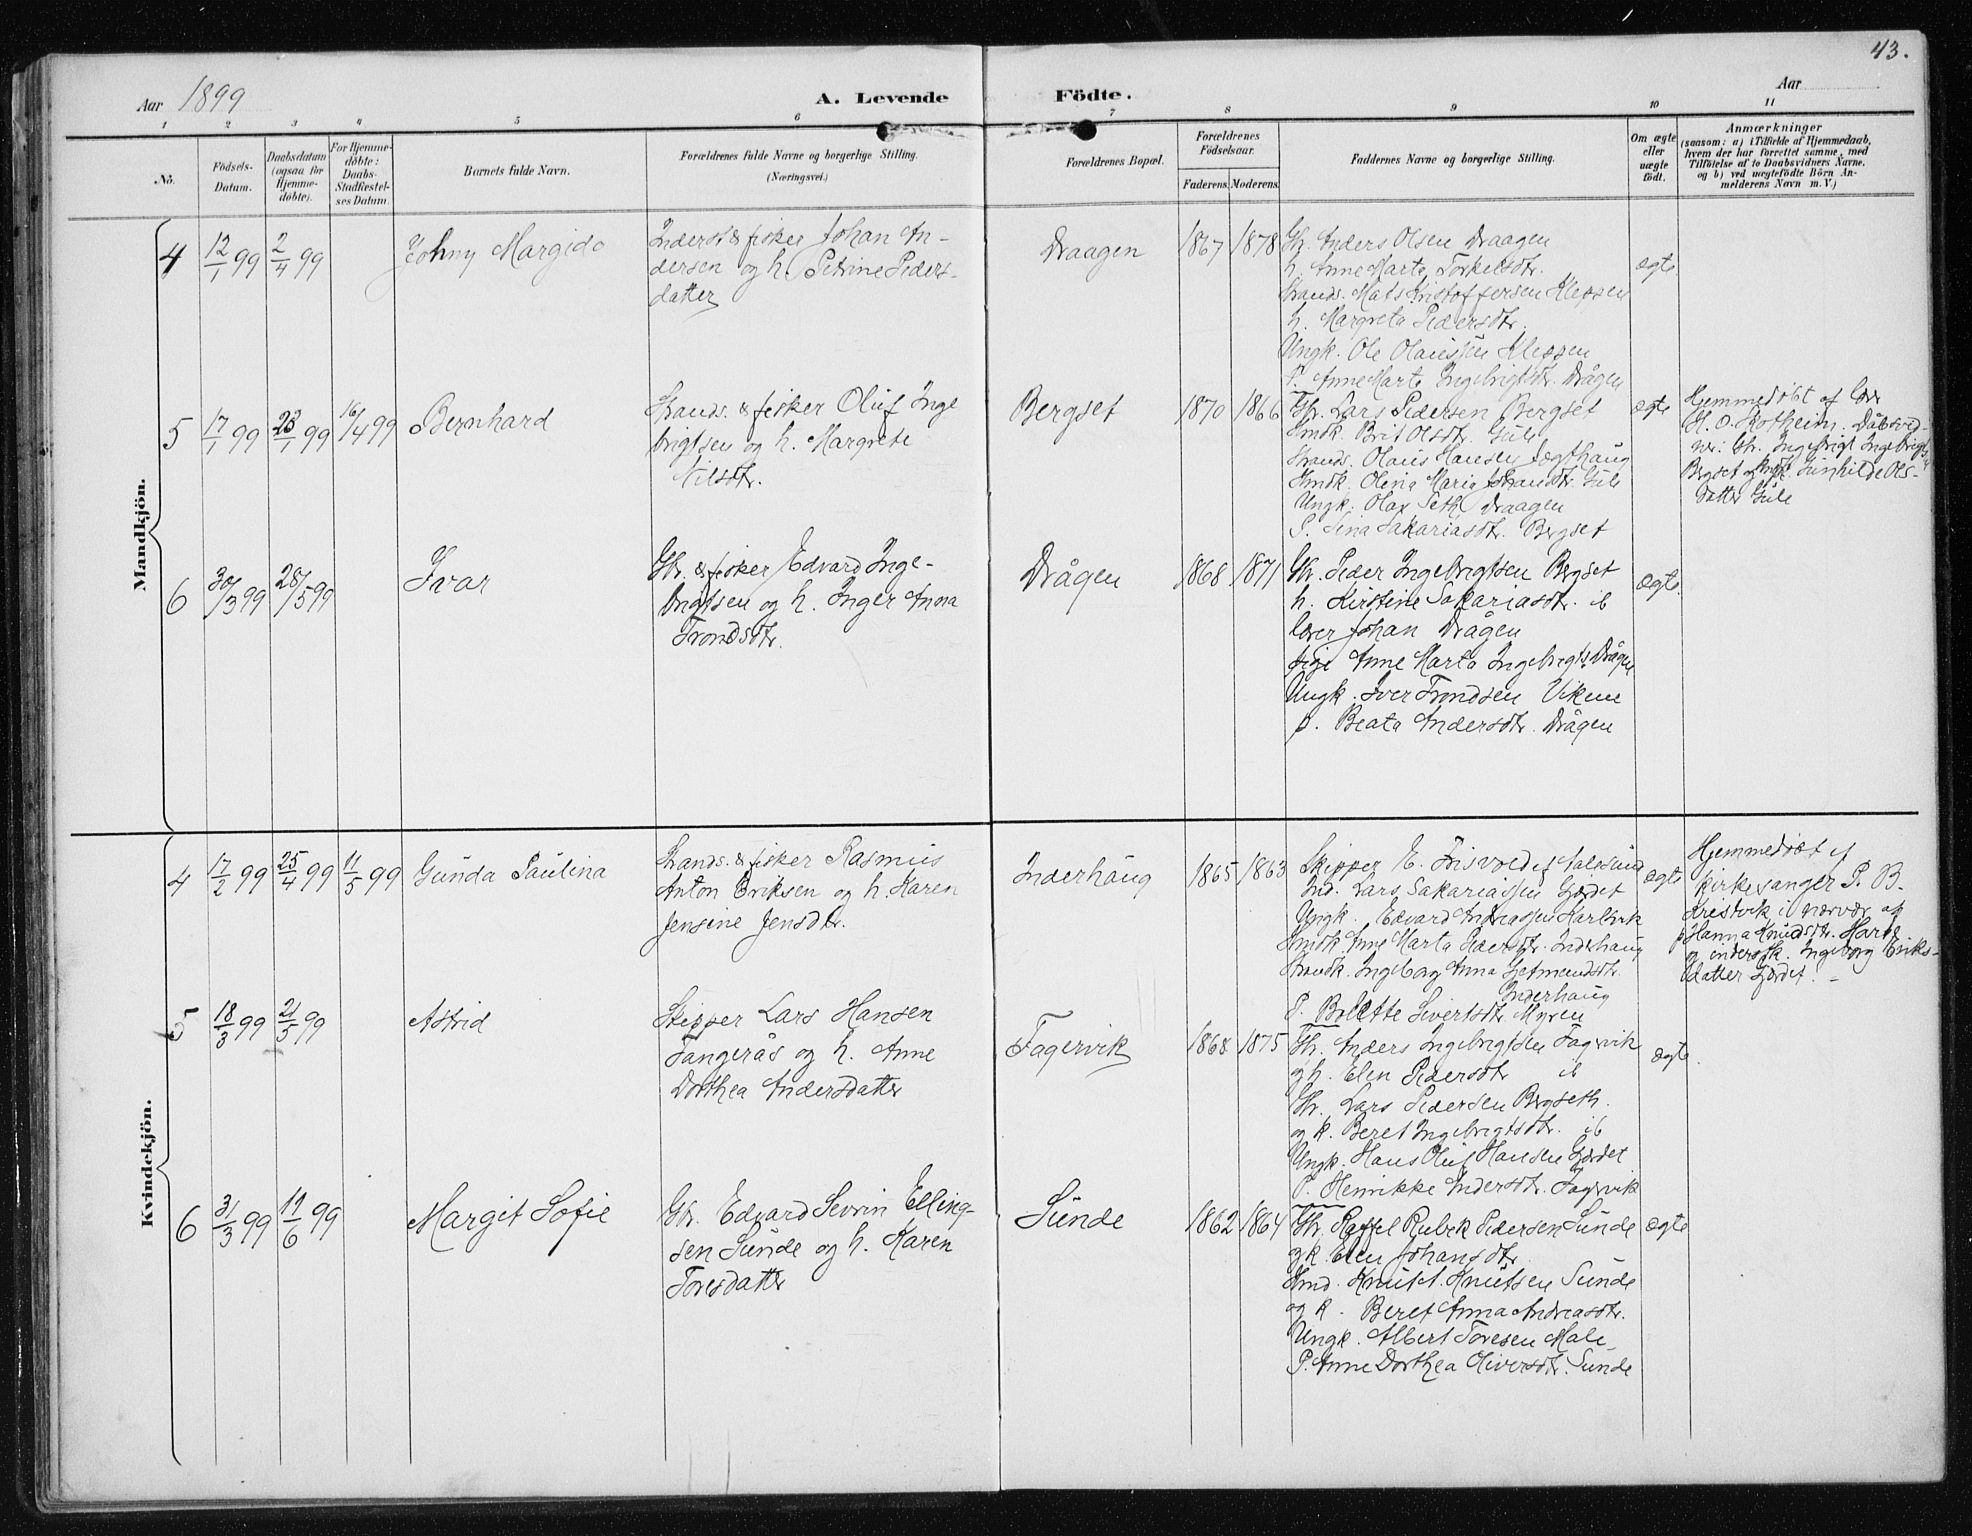 43.
Aar 1899
A. Levende Födte.
Aar
1 2 3 4 5 6 7 8 9 10 11
No.
Födsels-
Datum.
Daabsdatum
(ogsaa for
Hjemme-
döbte).
For Hjemme-
döbte:
Daabs-
Stadfæstel-
ses Datum.
Barnets fulde Navn.
Forældrenes fulde Navne og borgerlige Stilling.
(Næringsvei.)
Forældrenes Bopæl.
Forældrenes
Födselsaar.
Faderens. Moderens.
Faddernes Navne og borgerlige Stilling.
Om ægte
eller
uægte
födt.
Anmærkninger
(saasom: a) i Tilfælde af Hjemmedaab,
hvem der har forrettet samme, med
Tilföielse af to Daabsvidners Navne,
og b) ved uægtefödte Börn An-
melderens Navn m. V.)
Mandkjön.
4
12/1 99
2/4 99
Johny Margido
Inderst & fisker Johan An-
dersen og h. Petrine Peders-
datter
Draagen
1867 1878
Gbr. Anders Olsen Draagen
h. Anne Marta Torkelsdtr.
Strands. Mats Kristoffersen Kleppen
h. Margreta Pedersdtr.
Ungk. Ole Olaussen Kleppen
P. Anne Marta Ingebrigtsdtr. Drågen
ægte
5
17/1 99
23/1 99
16/4 99
Bernhard
Strands. & fisker Oluf Inge
brigtsen og h. Margrete
Nilsdtr.
Bergset
1870 1866
Gbr. Lars Pedersen Bergset
Brit Olsdtr. Gule
Strands. Olaus Hansen Jægthaug
Olena Maria Johansdtr. Gule
Ungk. Olav Seth Draagen
P. Lina Sakariasdtr. Bergset
ægte
Hjemmedøbt af lær
H. O. Rotheim. Dåbsvid-
ner: Gbr. Ingebrigt Ingebrigts
Bergset og Gunhilde Ols-
datter Gule
6
30/3 99
28/5 99
Ivar
Gbr. & fisker Edvard Inge-
brigtsen og h. Inger Anna
Trondsdtr.
Drågen
1868 1871
Gbr. Peder Ingebrigtsen Bergset
h. Kirstine Sakariasdtr. ib
lærer Johan Drågen
pige Anne Marta Ingebrigts. Drågen
Ungk. Iver Trondsen Vikene
p. Beata Andersdtr. Drågen
ægte.
Kvindekjön.
4
17/2 99
25/4 99
11/5 99
Gunda Paulina
Strands. & fisker Rasmus
Anton Eriksen og h. Karen
Jensine Jensdtr.
Inderhaug
1865 1863
Skipper E. Frisvold af Aalesund
Ind. Lars Sakariassen Gjerdet
Ungk. Edvard Andreassen Harlvik
Anne Marta Pedersdtr. Inderhaug
Ingeborg Anna Getmundsdtr.
Inderhaug
P. Bolette Sivertsdtr. Myren
ægte
Hjemmedøbt af
kirkesanger P. B.
Krestvik i nærvær af
p Hanna Knudsdtr. Harøy
og inderstk. Ingeborg Eriks-
datter Gjerdet. -
5
18/3 99
21/5 99
Astrid
Skipper Lars Hansen
Tangerås og h. Anne
Dorthea Andersdatter
Fagervik
1868 1875
Gbr. Anders Ingebrigtsen Fagervik
og h. Elen Pedersdtr ib
Gbr. Lars Pedersen Bergseth.
og k. Beret Ingebrigtsdtr. ib
Ungk. Hans Oluf Hansen Gjerdet
P. Henrikke Andersdtr. Fagervik
ægte.
6
31/3 99
11/6 99
Margit Sofie
Gbr. Edvard Sevrin Elling-
sen Sunde og h. Karen
Toresdatter
Sunde
1862 1864
Gbr. Raffel Rubek Pedersen Sunde
og k. Elen Johansdtr.
Hmd. Knut Knutsen Sunde
og k. Beret Anna Andreasdtr.
Ungk. Albert Toresen Male
P. Anne Dorthea Oliversdtr. Sunde
ægte